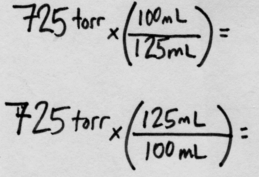 725 torr × (100mL / 125mL) =
725 torr × (125mL / 100mL) =